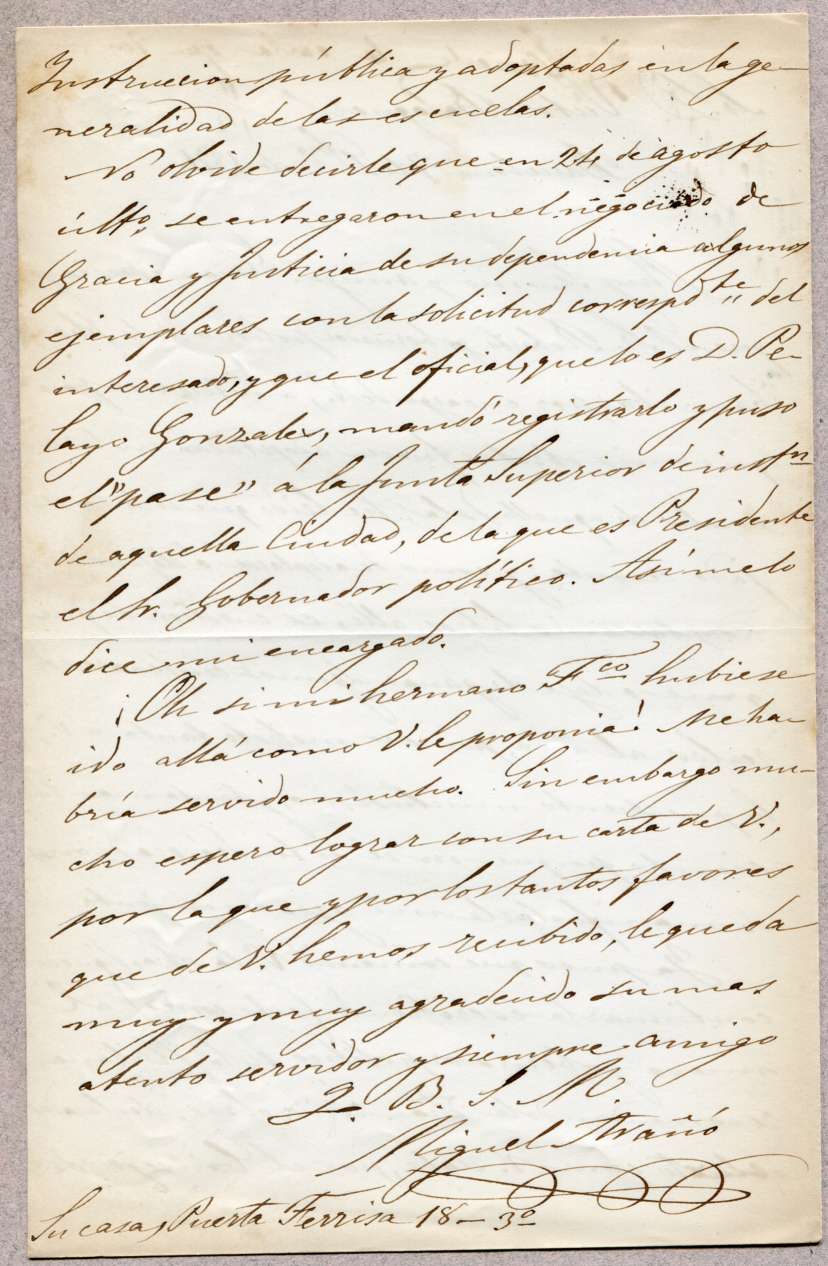 Instruccion pública y adoptadas en la ge-
neralidad de las escuelas.
No olvide decirle que en 24 de agosto
últto, se entregaron en el negociado de
Gracia y Justicia de su dependencia algunos
ejemplares con la solicitud correspdte del
interesado, y que el oficial, que lo es D. Pe-
layo Gonzalex, mandó registrarlo y puso
el "pase" á la Junta Superior de instn
de aquella Ciudad, de la que es Presidente
el Sr. Gobernador político. Así me lo
dice mi encargado.
¡Oh si mi hermano Fco hubiese
ido allá como V. le proponia! Me ha-
bría servido mucho. Sin embargo mu-
cho espero lograr con su carta de V.,
por la que y por los tantos favores
que de V. hemos recibido, le queda
muy y muy agradecido su mas
atento servidor y siempre amigo
Q. B. S. M.
Miguel Arañó
Su casa, Puerta Ferrisa 18 - 3o